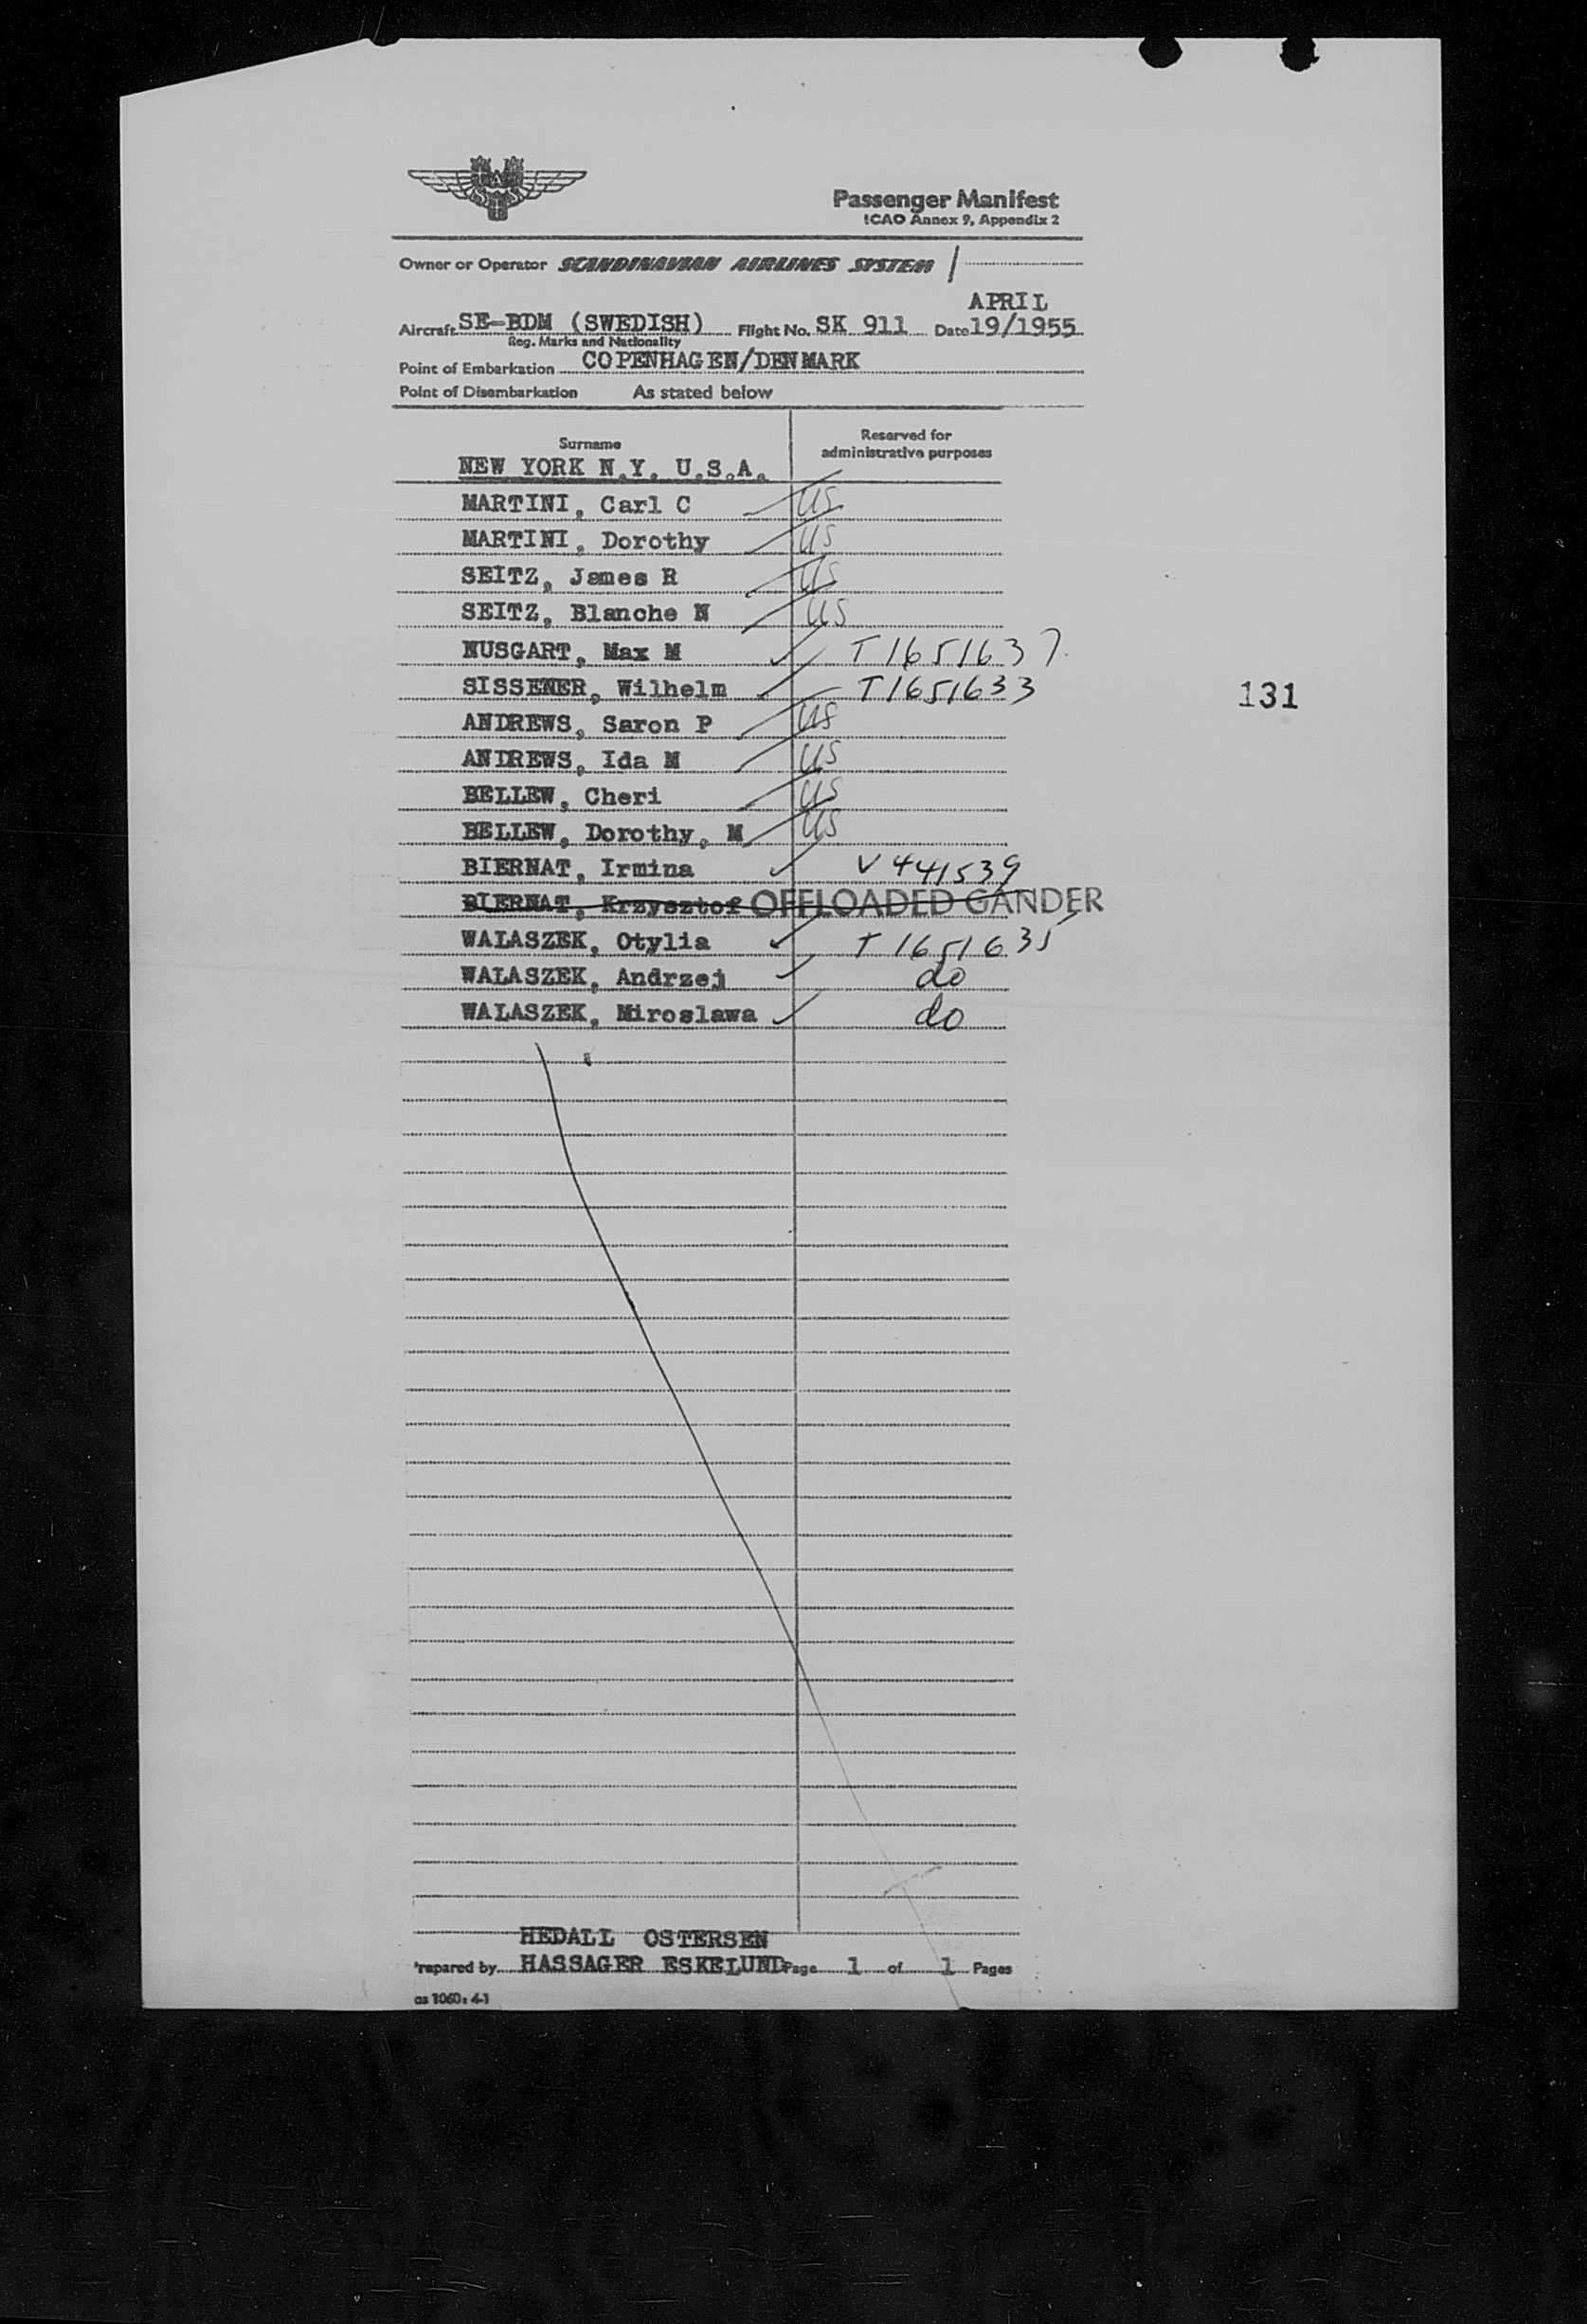 Passenger Manifest
ICAO Annex 9, Appendix 2
Owner or Operator SCANDINAVIAN AIRLINES SYSTEM /
APRIL
Aircraft SE-BDM (SWEDISH) Flight No. SK 911 Date 19/1955
Reg. Marks and Nationality
Point of Embarkation COPENHAGEN/DENMARK
Point of Disembarkation As stated below
Surname Reserved for administrative purposes
NEW YORK N.Y. U.S.A.
MARTINI, Carl C US
MARTINI, Dorothy US
SEITZ, James R US
SEITZ, Blanche N US
NUSGART, Max M T1651637
SISSENER, Wilhelm T1651633
131
ANDREWS, Saron P US
ANDREWS, Ida M US
BELLEW, Cheri US
BELLEW, Dorothy, M US
BIERNAT, Irmina V441539
BIERNAT, Krzysztof OFFLOADED GANDER
WALASZEK, Otylia T1651635
WALASZEK, Andrzej do
WALASZEK, Miroslawa do
HEDALL OSTERSEN
Prepared by HASSAGER ESKELUND Page 1 of 1 Pages
as 1060: 4-1